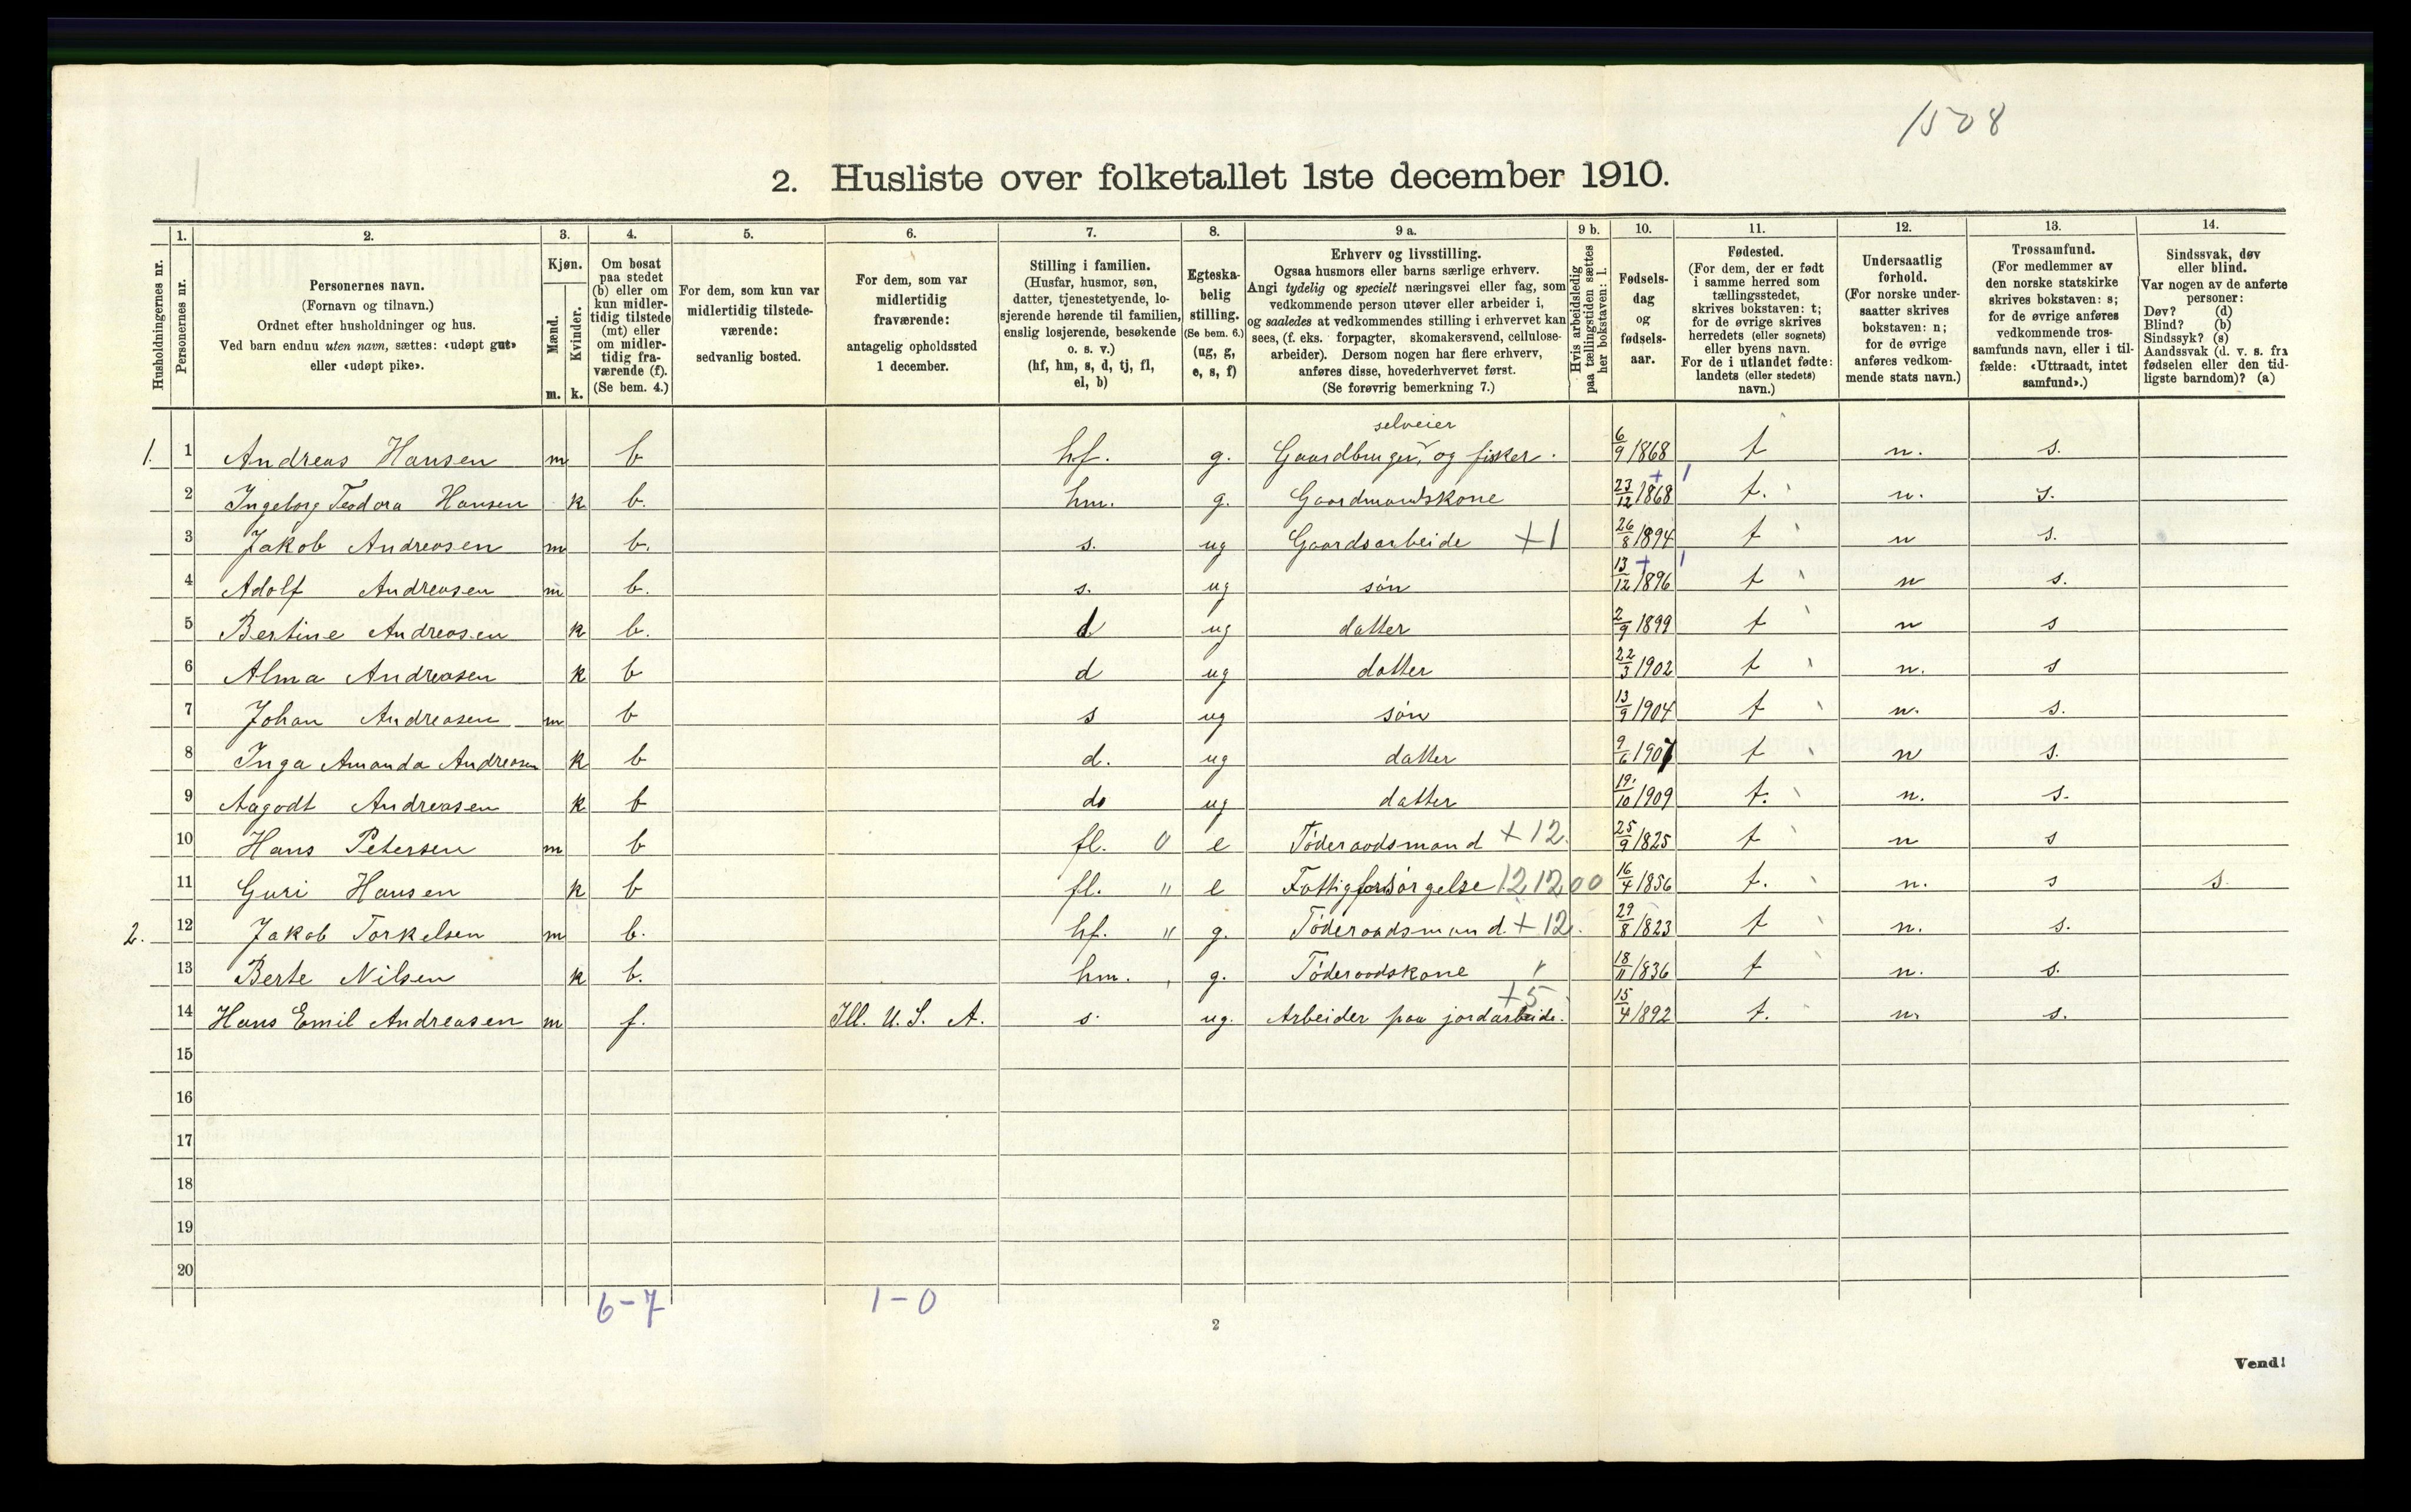 1508
2. Husliste over folketallet 1ste december 1910.
Husholdningernes nr.
1. Personernes nr.
2. Personernes navn.
(Fornavn og tilnavn.)
Ordnet efter husholdninger og hus.
Ved barn endnu uten navn, sættes: «udøpt gut»
eller «udøpt pike».
3. Kjøn.
Mænd. m.
Kvinder. k.
4. Om bosat
paa stedet
(b) eller om
kun midler-
tidig tilstede
(mt) eller
om midler-
tidig fra-
værende (f).
(Se bem. 4.)
5. For dem, som kun var
midlertidig tilstede-
værende:
sedvanlig bosted.
6. For dem, som var
midlertidig
fraværende:
antagelig opholdssted
1 december.
7. Stilling i familien.
(Husfar, husmor, søn,
datter, tjenestetyende, lo-
sjerende hørende til familien,
enslig losjerende, besøkende
o. s. v.)
(hf, hm, s, d, tj, fl,
el, b)
8. Egteska-
belig
stilling.
(Se bem. 6.)
(ug, g,
e, s, f)
9 a. Erhverv og livsstilling.
Ogsaa husmors eller barns særlige erhverv.
Angi tydelig og specielt næringsvei eller fag, som
vedkommende person utøver eller arbeider i,
og saaledes at vedkommendes stilling i erhvervet kan
sees, (f. eks. forpagter, skomakersvend, cellulose-
arbeider). Dersom nogen har flere erhverv,
anføres disse, hovederhvervet først.
(Se forøvrig bemerkning 7.)
9 b. Hvis arbeidsledig
paa tællingstiden sættes
her bokstaven: l.
10. Fødsels-
dag
og
fødsels-
aar.
11. Fødested.
(For dem, der er født
i samme herred som
tællingsstedet,
skrives bokstaven: t;
for de øvrige skrives
herredets (eller sognets)
eller byens navn.
For de i utlandet fødte:
landets (eller stedets)
navn.)
12. Undersaatlig
forhold.
(For norske under-
saatter skrives
bokstaven: n;
for de øvrige
anføres vedkom-
mende stats navn.)
13. Trossamfund.
(For medlemmer av
den norske statskirke
skrives bokstaven: s;
for de øvrige anføres
vedkommende tros-
samfunds navn, eller i til-
fælde: «Uttraadt, intet
samfund».)
14. Sindssvak, døv
eller blind.
Var nogen av de anførte
personer:
Døv? (d)
Blind? (b)
Sindssyk? (s)
Aandssvak (d. v. s. fra
fødselen eller den tid-
ligste barndom)? (a)
selveier
1. 1 Andreas Hansen m b hf. g. Gaardbruger, og fisker. 6/9 1868 t n. s.
2 Ingeborg Teodora Hansen k b. hm. g. Gaardmandskone 23/12 1868 t. n. s.
3 Jakob Andreasen m b. s. ug Gaardsarbeide +1 26/8 1894 t n s.
4 Adolf Andreasen m b. s. ug søn 13/12 1896 t n s.
5 Bertine Andreasen k b. d ug datter 2/9 1899 t n s
6 Alma Andreasen k b d ug datter 22/3 1902 t n. s
7 Johan Andreasen m b s ug søn 13/9 1904 t n. s.
8 Inga Amanda Andreasen k b d. ug datter 9/6 1907 t n s.
9 Aagodt Andreasen k b do ug datter 19/10 1909 t. n. s.
10 Hans Petersen m b fl. 0 e Føderaadsmand +12. 25/9 1825 t n s
11 Guri Hansen k b fl. " e Fattigforsørgelse 121200 16/4 1856 t. n. s s.
2. 12 Jakob Torkelsen m b. hf. " g. Føderaadsmand. +12. 29/8 1823 t n. s.
13 Berte Nilsen k b. hm. g. Føderaadskone " 18/11 1836 t n. s.
14 Hans Emil Andreasen m f. Ill. U. S. A. s. ug. Arbeider paa jordarbeide. +5 15/4 1892 t. n. s.
15
16
17
18
19
20
6-7 1-0
2
Vend!